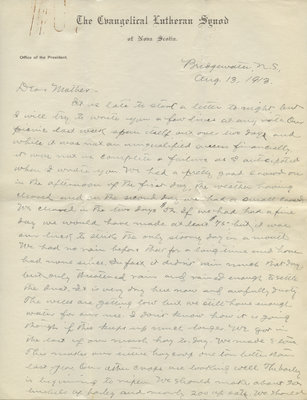 The Evangelical Lutheran Synod
of Nova Scotia.
Office of the President.
Bridgewater, N.S.
Aug. 13, 1913.
Dear Mother:-
It is late to start a letter to-night but
I will try to write you a few lines at any rate. Our
picnic last week spun itself out over two days and
while it was not an unqualified success financially
it was not as complete a failure as I anticipated
when I wrote you. We had a fairly good crowd on
in the afternoon of the first day, the weather having
cleared and on the second day we had a small crowd.
We cleared in the two days If we had had a fine
day we would have made at least but it was
our luck to strike the only stormy day in a month.
We had no rain before that for a long time and none
had since. In fact it didn't rain much that day
but only threatened rain and rained enough to settle
the dust. It is very dry here now and awfully dusty.
The wells are getting low but we still have enough
water for our use. I don't know how it is going
though if this keeps up much longer. We got in
the last of our marsh hay to-day. We made 5 tons.
This makes our entire hay crop one ton better than
last year. Our other crops are looking well. The barley
is beginning to ripen. We should make about
bushels of barley and nearly 200 of oats. We should